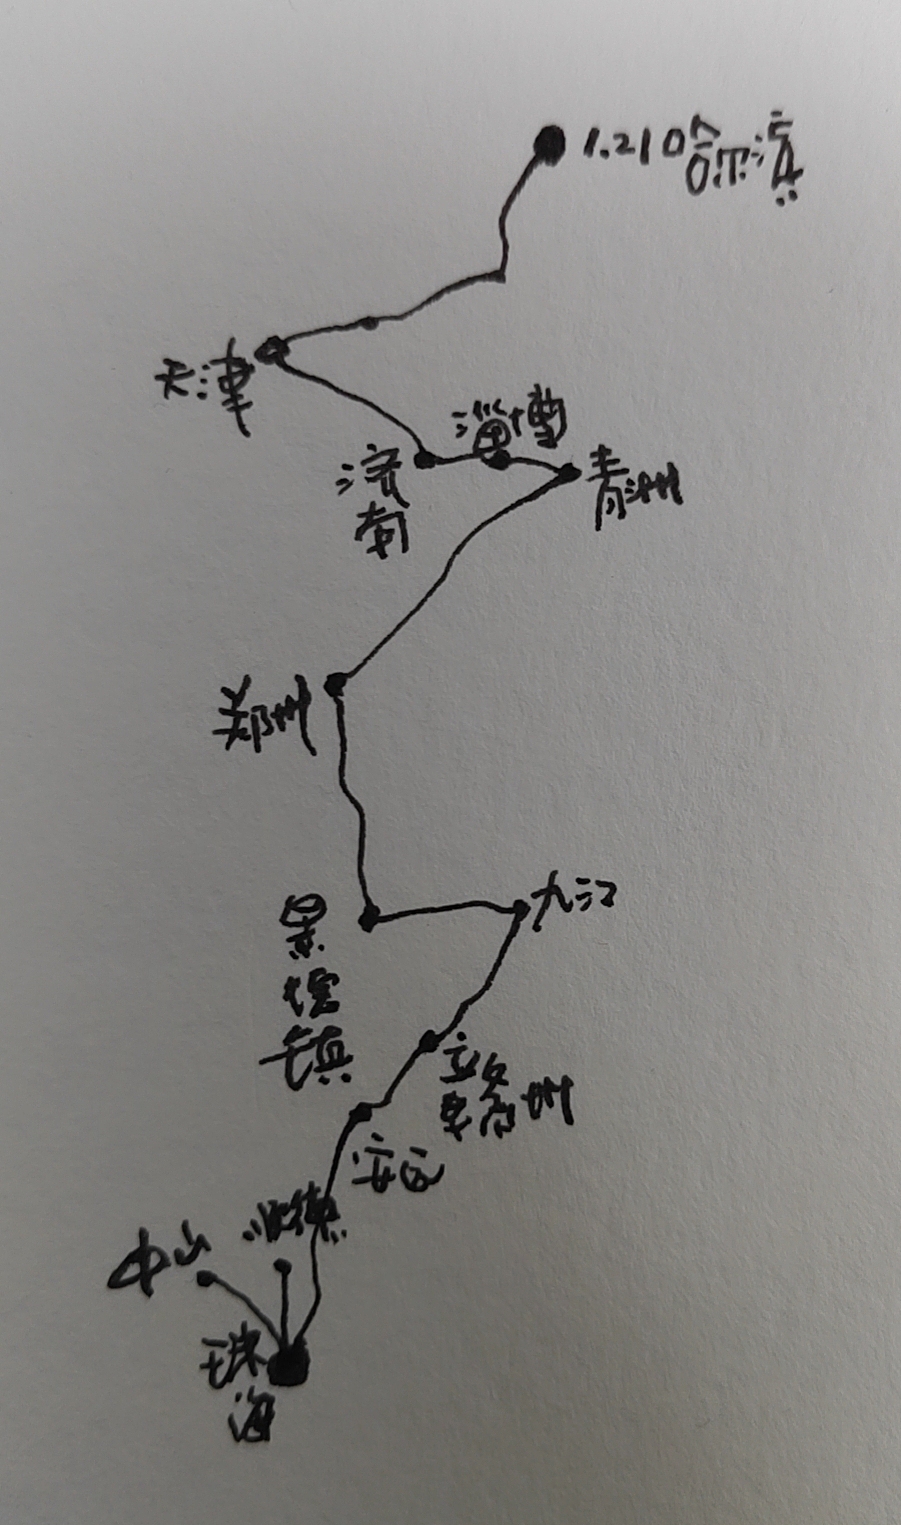 1.21哈尔滨
天津
淄博
济
南
青州
郑州
九江
景
德
镇
赣州
安远
顺德
中山
珠
海